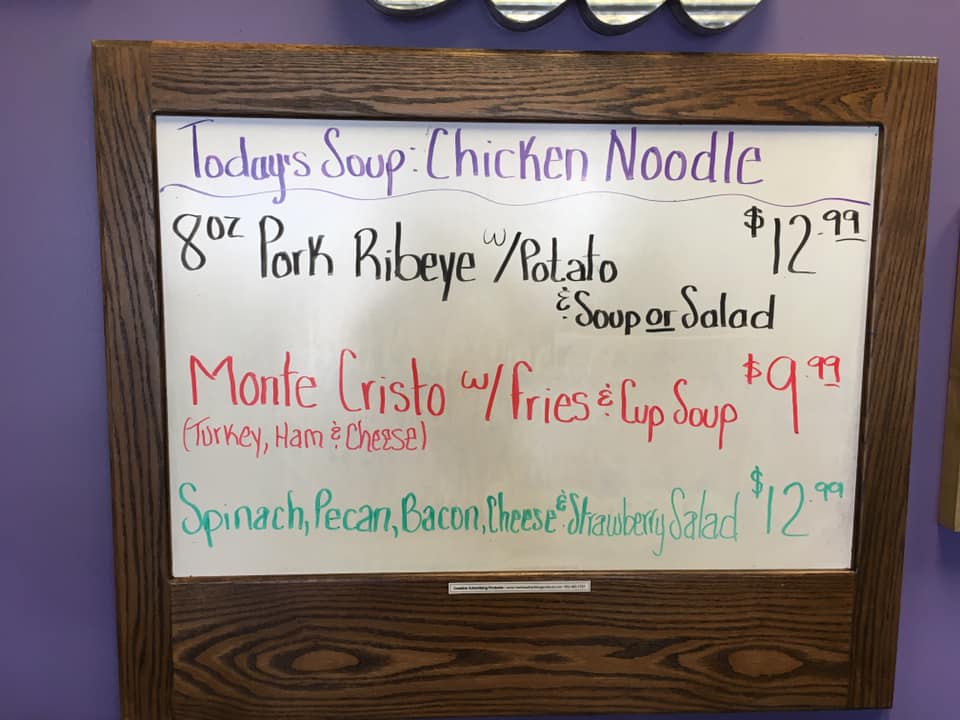 Today's Soup: Chicken Noodle
8oz Pork Ribeye w/Potato $12.99
& Soup or Salad
Monte Cristo w/ fries & Cup Soup $9.99
(Turkey, Ham & Cheese)
Spinach, Pecan, Bacon, Cheese & Strawberry Salad $12.99